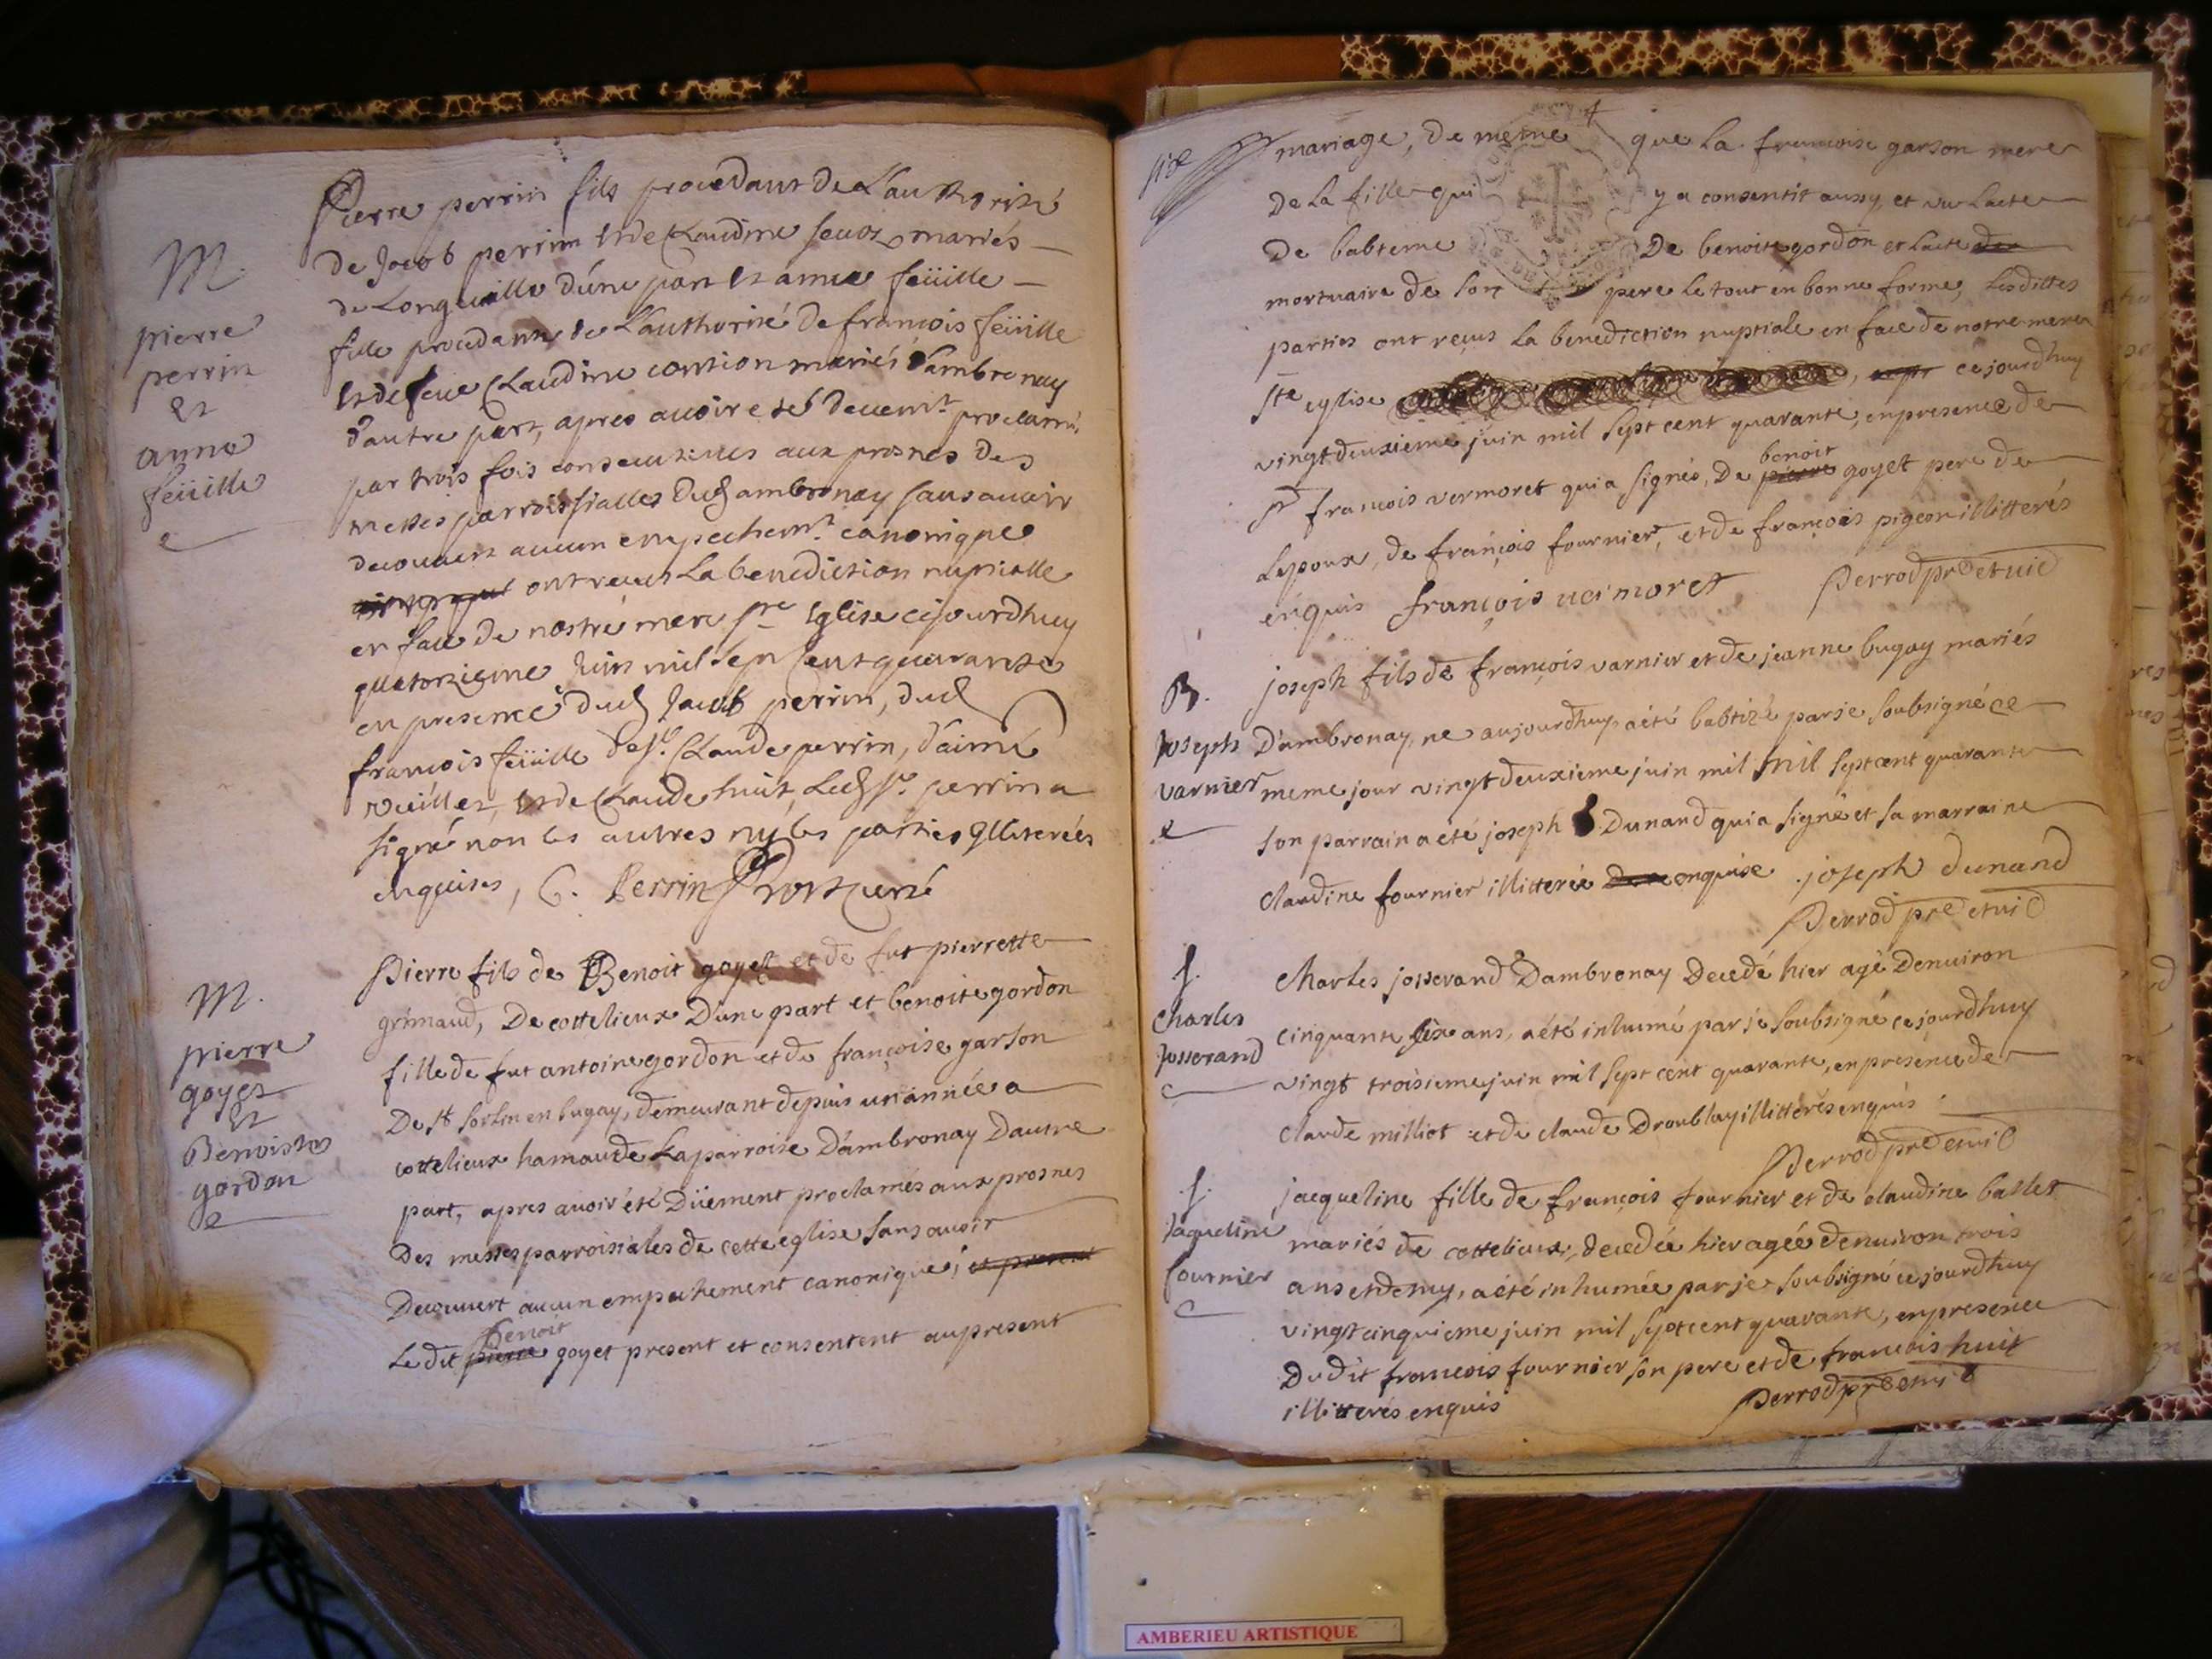 M.
pierre
perrin
et
anne
feüille
Pierre perrin fils procedant de L'authorité
de Jacob perrin et de Claudine mariés
de Longeville d'une part et anne feüille
fille procedante de L'authorité de francois feüille
et de feue Claudine contion mariés d'ambronay
d'autre part, apres avoir eté deuem.t proclamé
par trois fois consecutives aux prosnes des
messes parroissialles dud ambronay sans avoir
decouvert aucun empechem.t canonique
ont reçus La benediction nuptialle
en face de nostre mere ste Eglise cejourdhuy
quatorzieme Juin mil sept cent quarante
en presence dud Jacob perrin, dud
francois feüille de sr. Claude perrin, d'aimé
vuillet, et de Claude huit, Led sr. perrin a
signé non les autres ny les parties illiterées
enquises, C. Perrin curé
M.
pierre
goyet
et
Benoiste
gordon
Pierre fils de Benoit goyet et de fut pierrette
grimaud, De cottelieux D'une part et benoite gordon
fille de fut antoine gordon et de françoise garson
De st sorlin en bugay, demeurant depuis un année a
cottelieux hamau de La parroise D'ambronay Dautre
part, apres avoir été Düement proclamés aux prosnes
Des messes parroisiales de cette eglise sans avoir
Decouvert aucun empechement canonique, et present
Le dit pierre benoit goyet present et consentent au present
mariage, de meme que la francoise garson mere
De La fille qui y a consentit aussy, et vu L'acte
De babteme De benoite gordon et L'acte
mortuaire de son pere Le tout en bonne forme, Lesdittes
parties ont reçus La benediction nuptiale en face de notre mere
ste eglise , cejourdhuy
vingt deuxieme juin mil sept cent quarante, en presence de
sr francois vermoret qui a signés, De pierre benoit goyet pere de
L'epoux, de françois fournier, et de françois pigeon illitterés
enquis françois vermoret Perrod pre et vic
B.
Joseph
varnier
joseph fils de françois varnier et de jeanne bugay mariés
D'ambronay, ne aujourdhuy a été babtizé par je soubsigné ce
meme jour vingt deuxieme juin mil mil sept cent quarante
son parrain a eté joseph Dunand qui a signé et sa marraine
claudine fournier illitterée enquise . joseph dunand
Perrod pre et vic
S.
Charles
Josserand
Charles josserand D'ambronay Decedé hier agé Denviron
cinquante six ans, a été inhumé par je soubsigné cejourdhuy
vingt troisieme juin mil sept cent quarante, en presence de
claude milliot et de claude Droublay illitterés enquis
Perrod pre et vic
S.
Jaqueline
fournier
jacqueline fille de françois fournier et de claudine ballet
mariés de cottelieux, decedée hier agée denviron trois
ans et demy, a été inhumée par je soubsigné cejourdhuy
vingt cinquieme juin mil sept cent quarante, en presence
Dudit francois fournier son pere et de francois huit
illitterés enquis Perrod pre et vic
AMBERIEU ARTISTIQUE